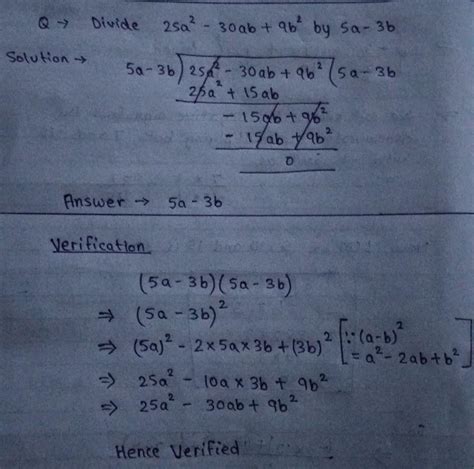 Q → Divide 25a² - 30ab + 9b² by 5a - 3b
Solution →
5a-3b)25a² - 30ab + 9b²(5a - 3b
25a² + 15ab
- 15ab + 9b²
- 15ab + 9b²
0
Answer → 5a - 3b
Verification
(5a - 3b)(5a - 3b)
⇒ (5a - 3b)²
⇒ (5a)² - 2×5a×3b + (3b)² [∵(a-b)² = a² - 2ab + b²]
⇒ 25a² - 10a × 3b + 9b²
⇒ 25a² - 30ab + 9b²
Hence Verified